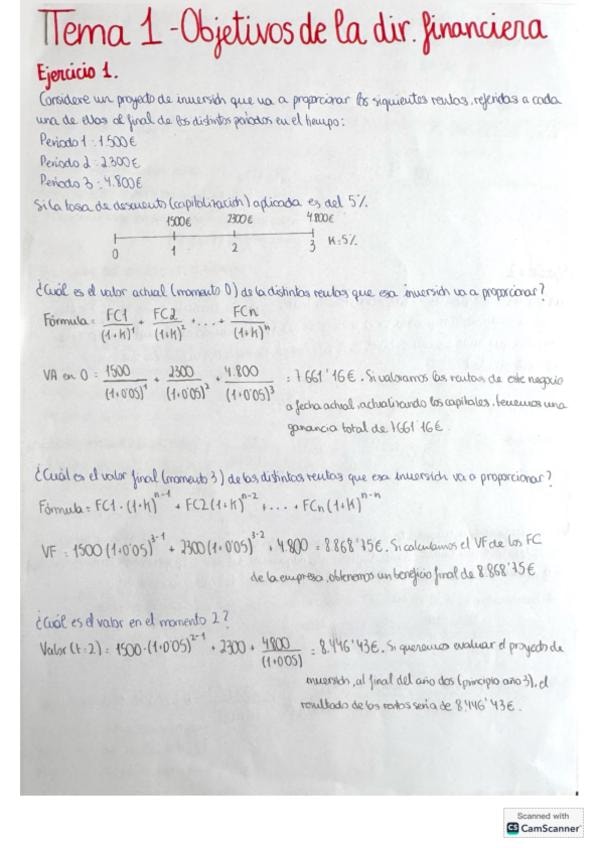 Tema 1 - Objetivos de la dir. financiera
Ejercicio 1.
Considere un proyecto de inversión que va a proporcionar las siguientes rentas, referidas a cada
una de ellas al final de los distintos periodos en el tiempo:
Periodo 1: 1.500€
Periodo 2: 2300€
Periodo 3: 4.800€
Si la tasa de descuento (capitalización) aplicada es del 5%.
1500€ 2300€ 4.800€
0 1 2 3 K=5%
¿Cuál es el valor actual (momento 0) de la distintas rentas que esa inversión va a proporcionar?
Fórmula = FC1/(1+K)^1 + FC2/(1+K)^2 + ... + FCn/(1+K)^n
VA en 0 = 1500/(1+0'05)^1 + 2300/(1+0'05)^2 + 4.800/(1+0'05)^3 = 7.661'16€. Si valoramos las rentas de este negocio
a fecha actual, actualizando los capitales, tenemos una
ganancia total de 7661'16€.
¿Cuál es el valor final (momento 3) de las distintas rentas que esa inversión va a proporcionar?
Fórmula = FC1·(1+K)^n-1 + FC2(1+K)^n-2 + ... + FCn(1+K)^n-n
VF = 1500(1+0'05)^3-1 + 2300(1+0'05)^3-2 + 4.800 = 8.868'75€. Si calculamos el VF de los FC
de la empresa, obtenemos un beneficio final de 8.868'75€
¿Cuál es el valor en el momento 2?
Valor (t=2) = 1500·(1+0'05)^2-1 + 2300 + 4800/(1+0'05) = 8.446'43€. Si queremos evaluar el proyecto de
inversión, al final del año dos (principio año 3), el
resultado de las rentas seria de 8446'43€.
Scanned with
CS CamScanner